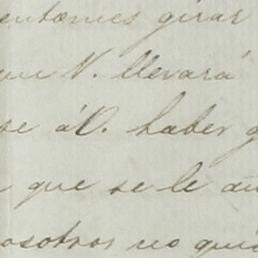 entonces girar
que V. llevará
se á V. haber
que se le
osotros no